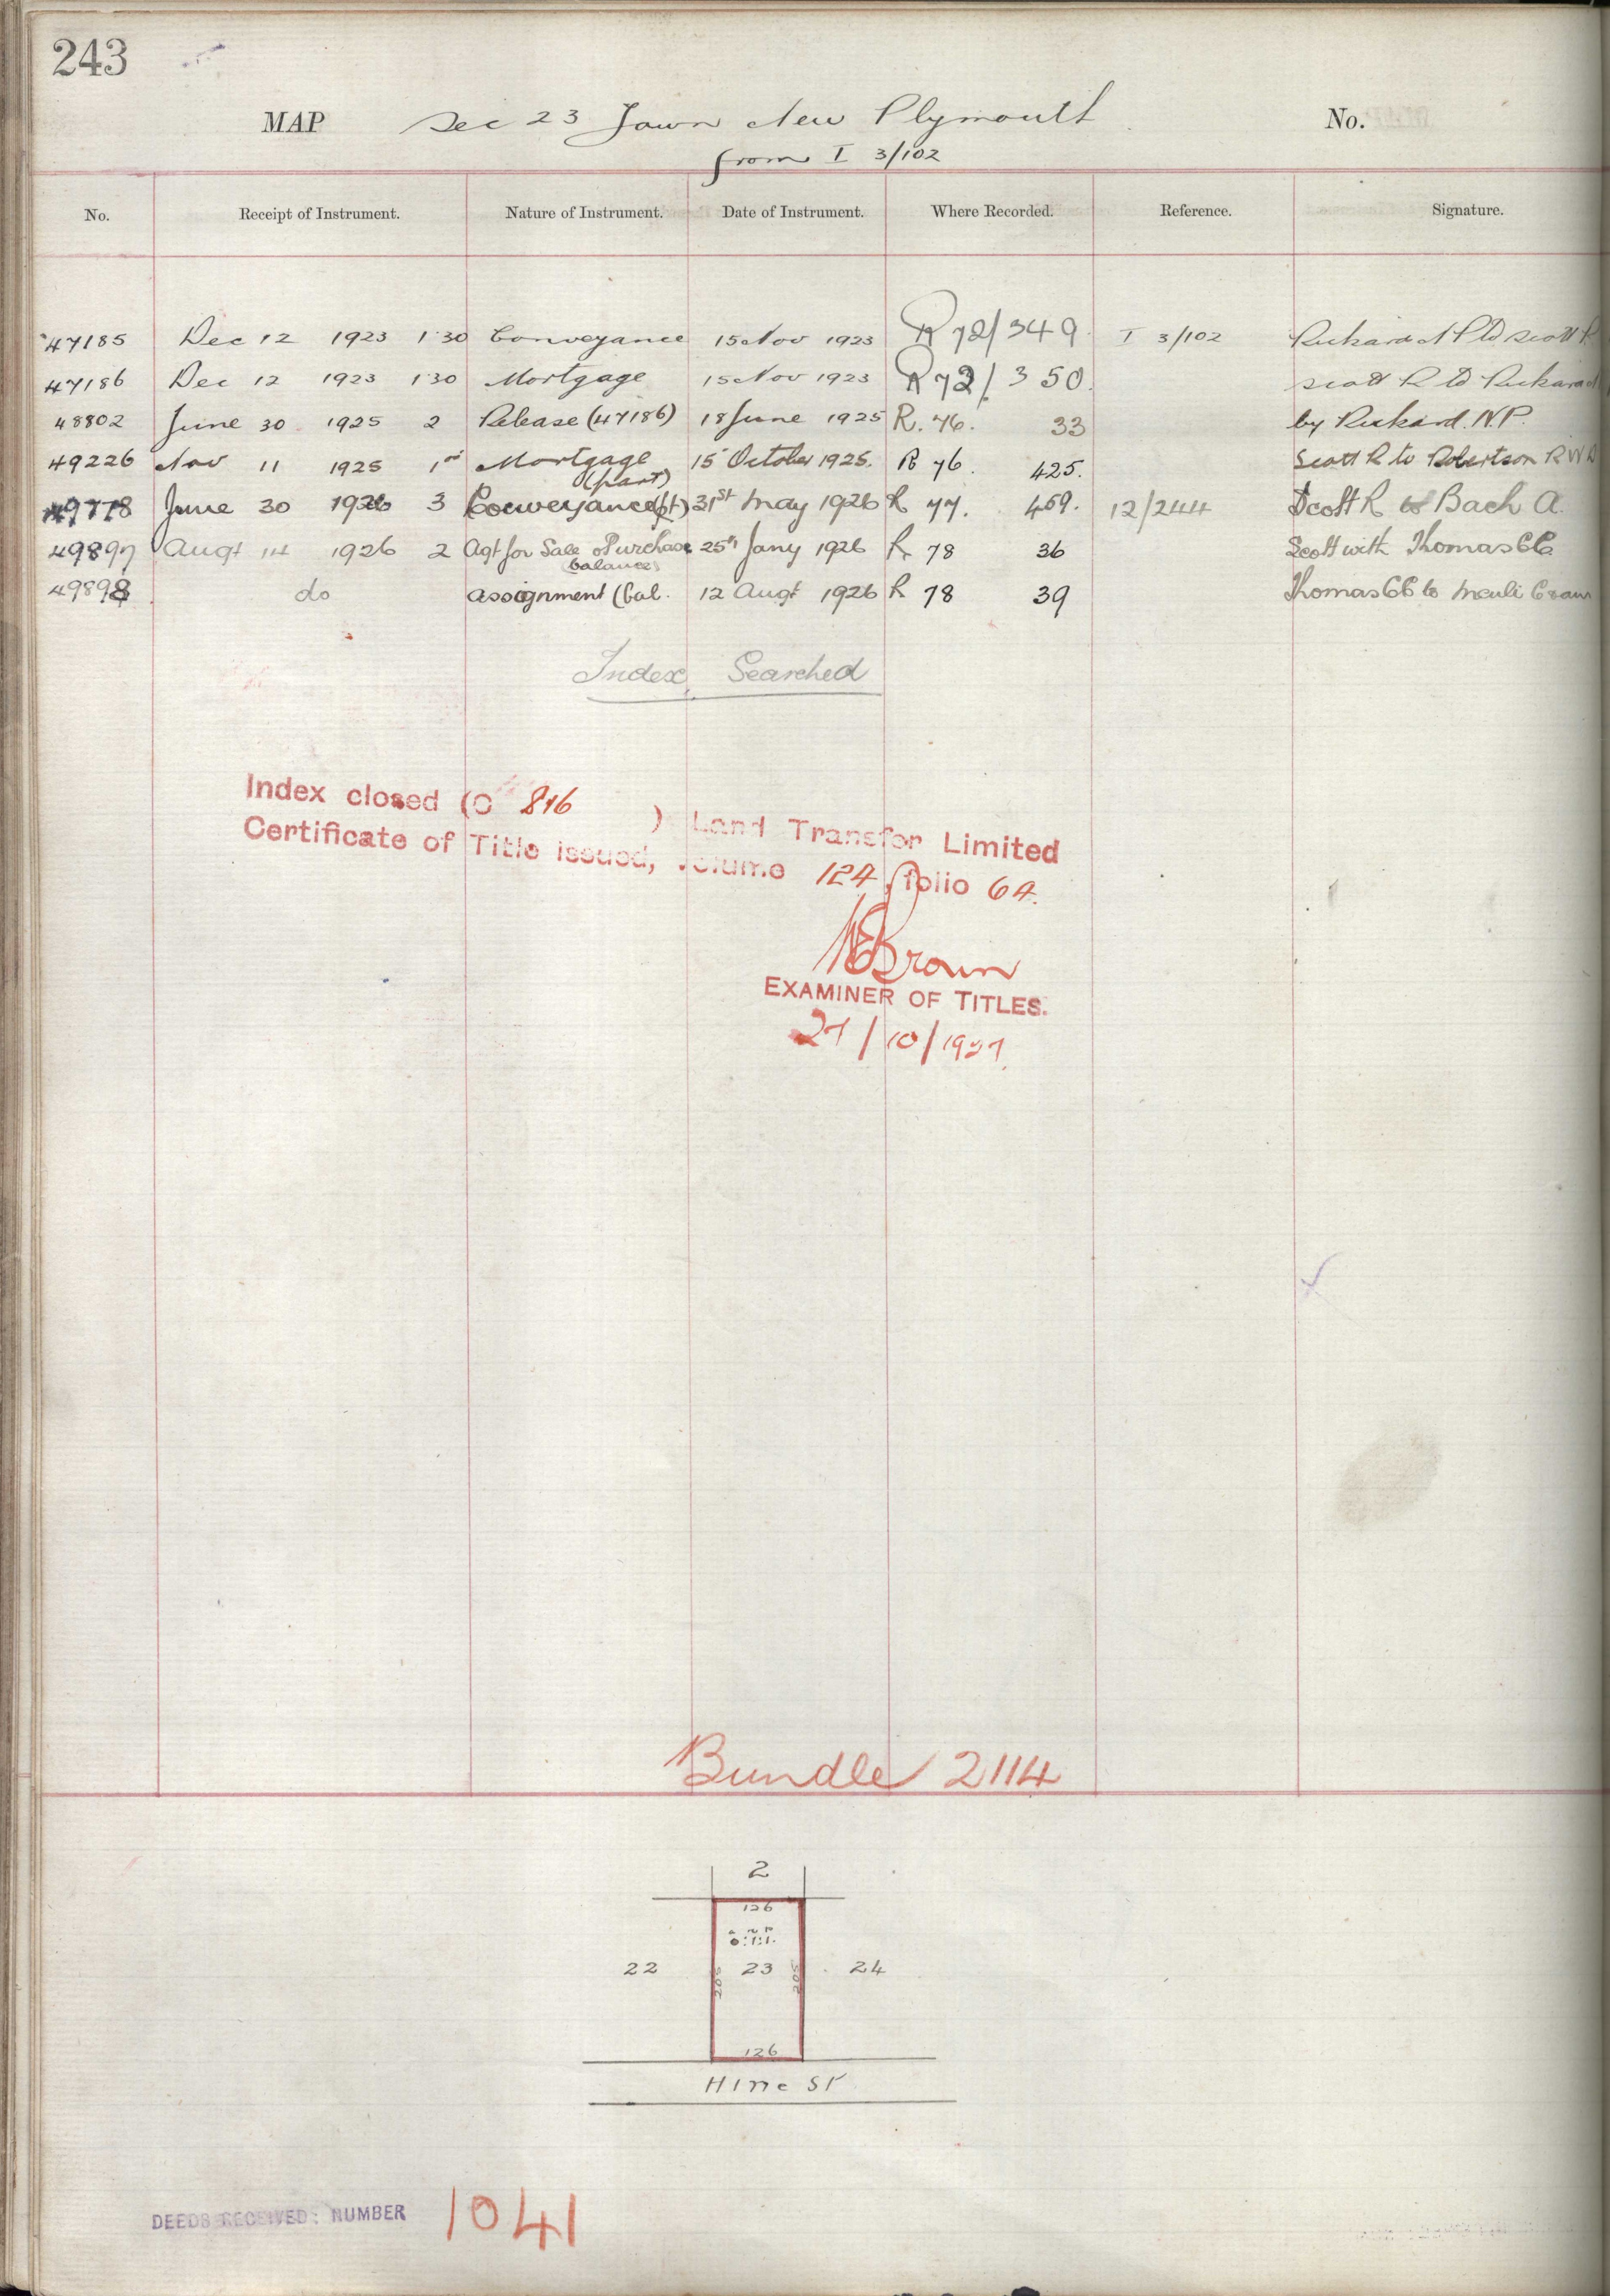 243
MAP Sec 23 Town New Plymouth No.
from I 3/102
No. Receipt of Instrument. Nature of Instrument. Date of Instrument. Where Recorded. Reference. Signature.
47185 Dec 12 1923 1.30 Conveyance 15 Nov 1923 R 72/349. I 3/102 Rickard N P to Scott R
47186 Dec 12 1923 1.30 Mortgage 15 Nov 1923 R 72/350. Scott R to Rickard N
48802 June 30 1925 2 Release (47186) 18 June 1925 R. 76. 33 by Rickard. N.P.
49226 Nov 11 1925 Mortgage 15 October 1925. R 76. 425. Scott R to Robertson R W
(part)
49778 June 30 1926 3 Conveyance (pt) 31st May 1926 R 77. 459. 12/244 Scott R to Bach A.
49897 Augt 14 1926 2 Agt for Sale & Purchase 25th Jany 1926 R 78 36 Scott with Thomas CC
(balance)
49898 do Assignment (bal. 12 Augt 1926 R 78 39 Thomas CC to
Index Searched
Index closed (C 816 ) Land Transfer Limited
Certificate of Title issued, Volume 124, folio 64.
Brown
EXAMINER OF TITLES.
27/10/1927.
Bundle 2114
2
126
0:1:1.
22 205 23 205 24
126
Hine St
DEEDS RECEIVED: NUMBER 1041